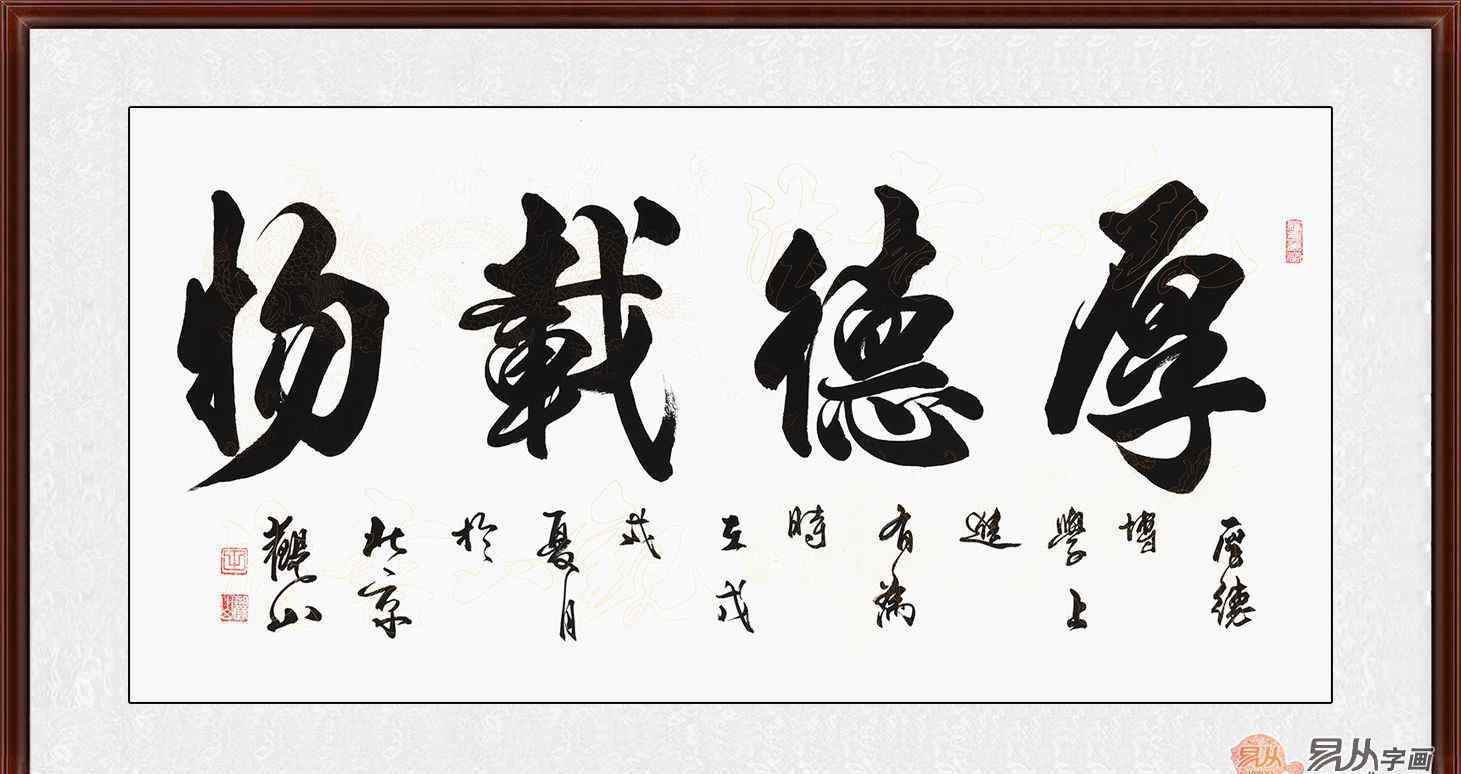 厚德載物
厚德
博
學上
進
有為
時
在戊
戌
夏月
於
北京
觀山
易从
易从字画